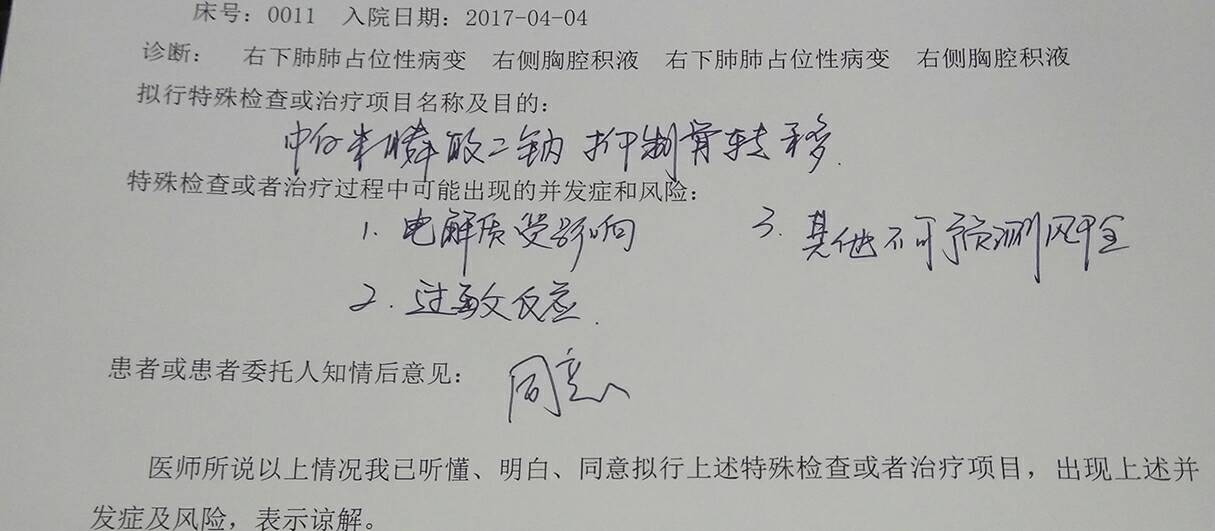 床号：0011 入院日期：2017-04-04
诊断： 右下肺肺占位性病变 右侧胸腔积液 右下肺肺占位性病变 右侧胸腔积液
拟行特殊检查或治疗项目名称及目的：
二钠 抑制骨转移.
特殊检查或者治疗过程中可能出现的并发症和风险：
1. 电解质受影响 3. 其他不可预测风险
2. 过敏反应.
患者或患者委托人知情后意见： 同意
医师所说以上情况我已听懂、明白、同意拟行上述特殊检查或者治疗项目，出现上述并
发症及风险，表示谅解。